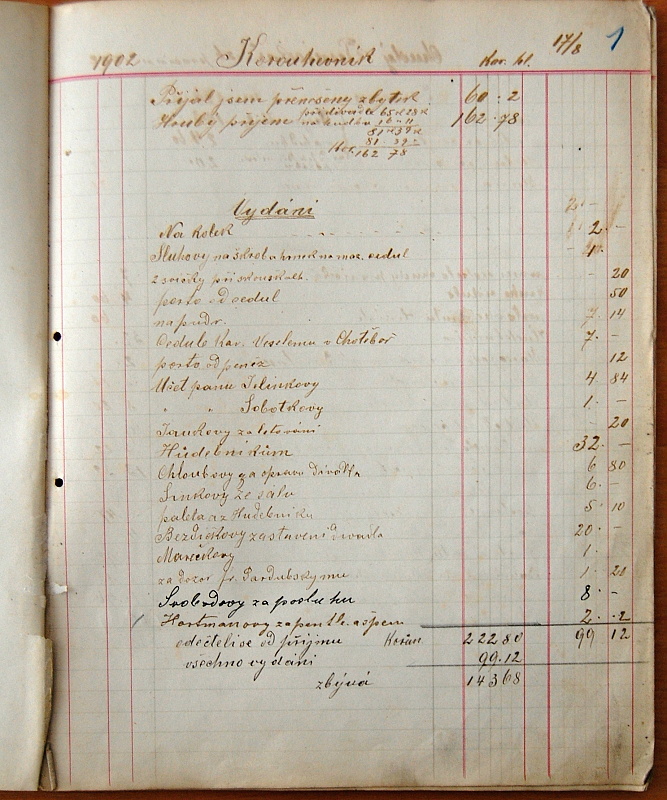 17/8 1
1902 Karouhevník Kor. hl.
Přijal jsem přenešený zbytek 60 2
Hrubý příjem při divadle 65 K 28 h 162 78
na hudbu 16 " 11
81 K 39 h
81 39 -
Kor. 162 78
Vydání 2 -
Na kolek 2 -
Sluhovy na škrob a hrnek na maz. cedul 4 -
2 svíčky při skouškách. - 20
porto od cedul 50
na pudr. 7 14
Cedule Kar. Veselemu v Chotěboř 7 -
porto od peněz 12
Účet panu Jelínkovy 4 84
" " Sobotkovy 1 -
Jankovy za letování - 20
Hudebníkům 32 -
Chloubovy za opravu Divadla 6 80
Linkovy ze sálu 6 -
paleta az Hudebníku 5 10
Bezdíčkovy za stavení divadla 20 -
Marečkovy 1
za dozor fr. Pardubskýmu 1 20
Svobodovy za posluhu 8 -
Hartmanovy za pentle a špen 2 2
odečtelise od příjmu Korun 222 80 99 12
všechno vydání 99.12
zbývá 143 68